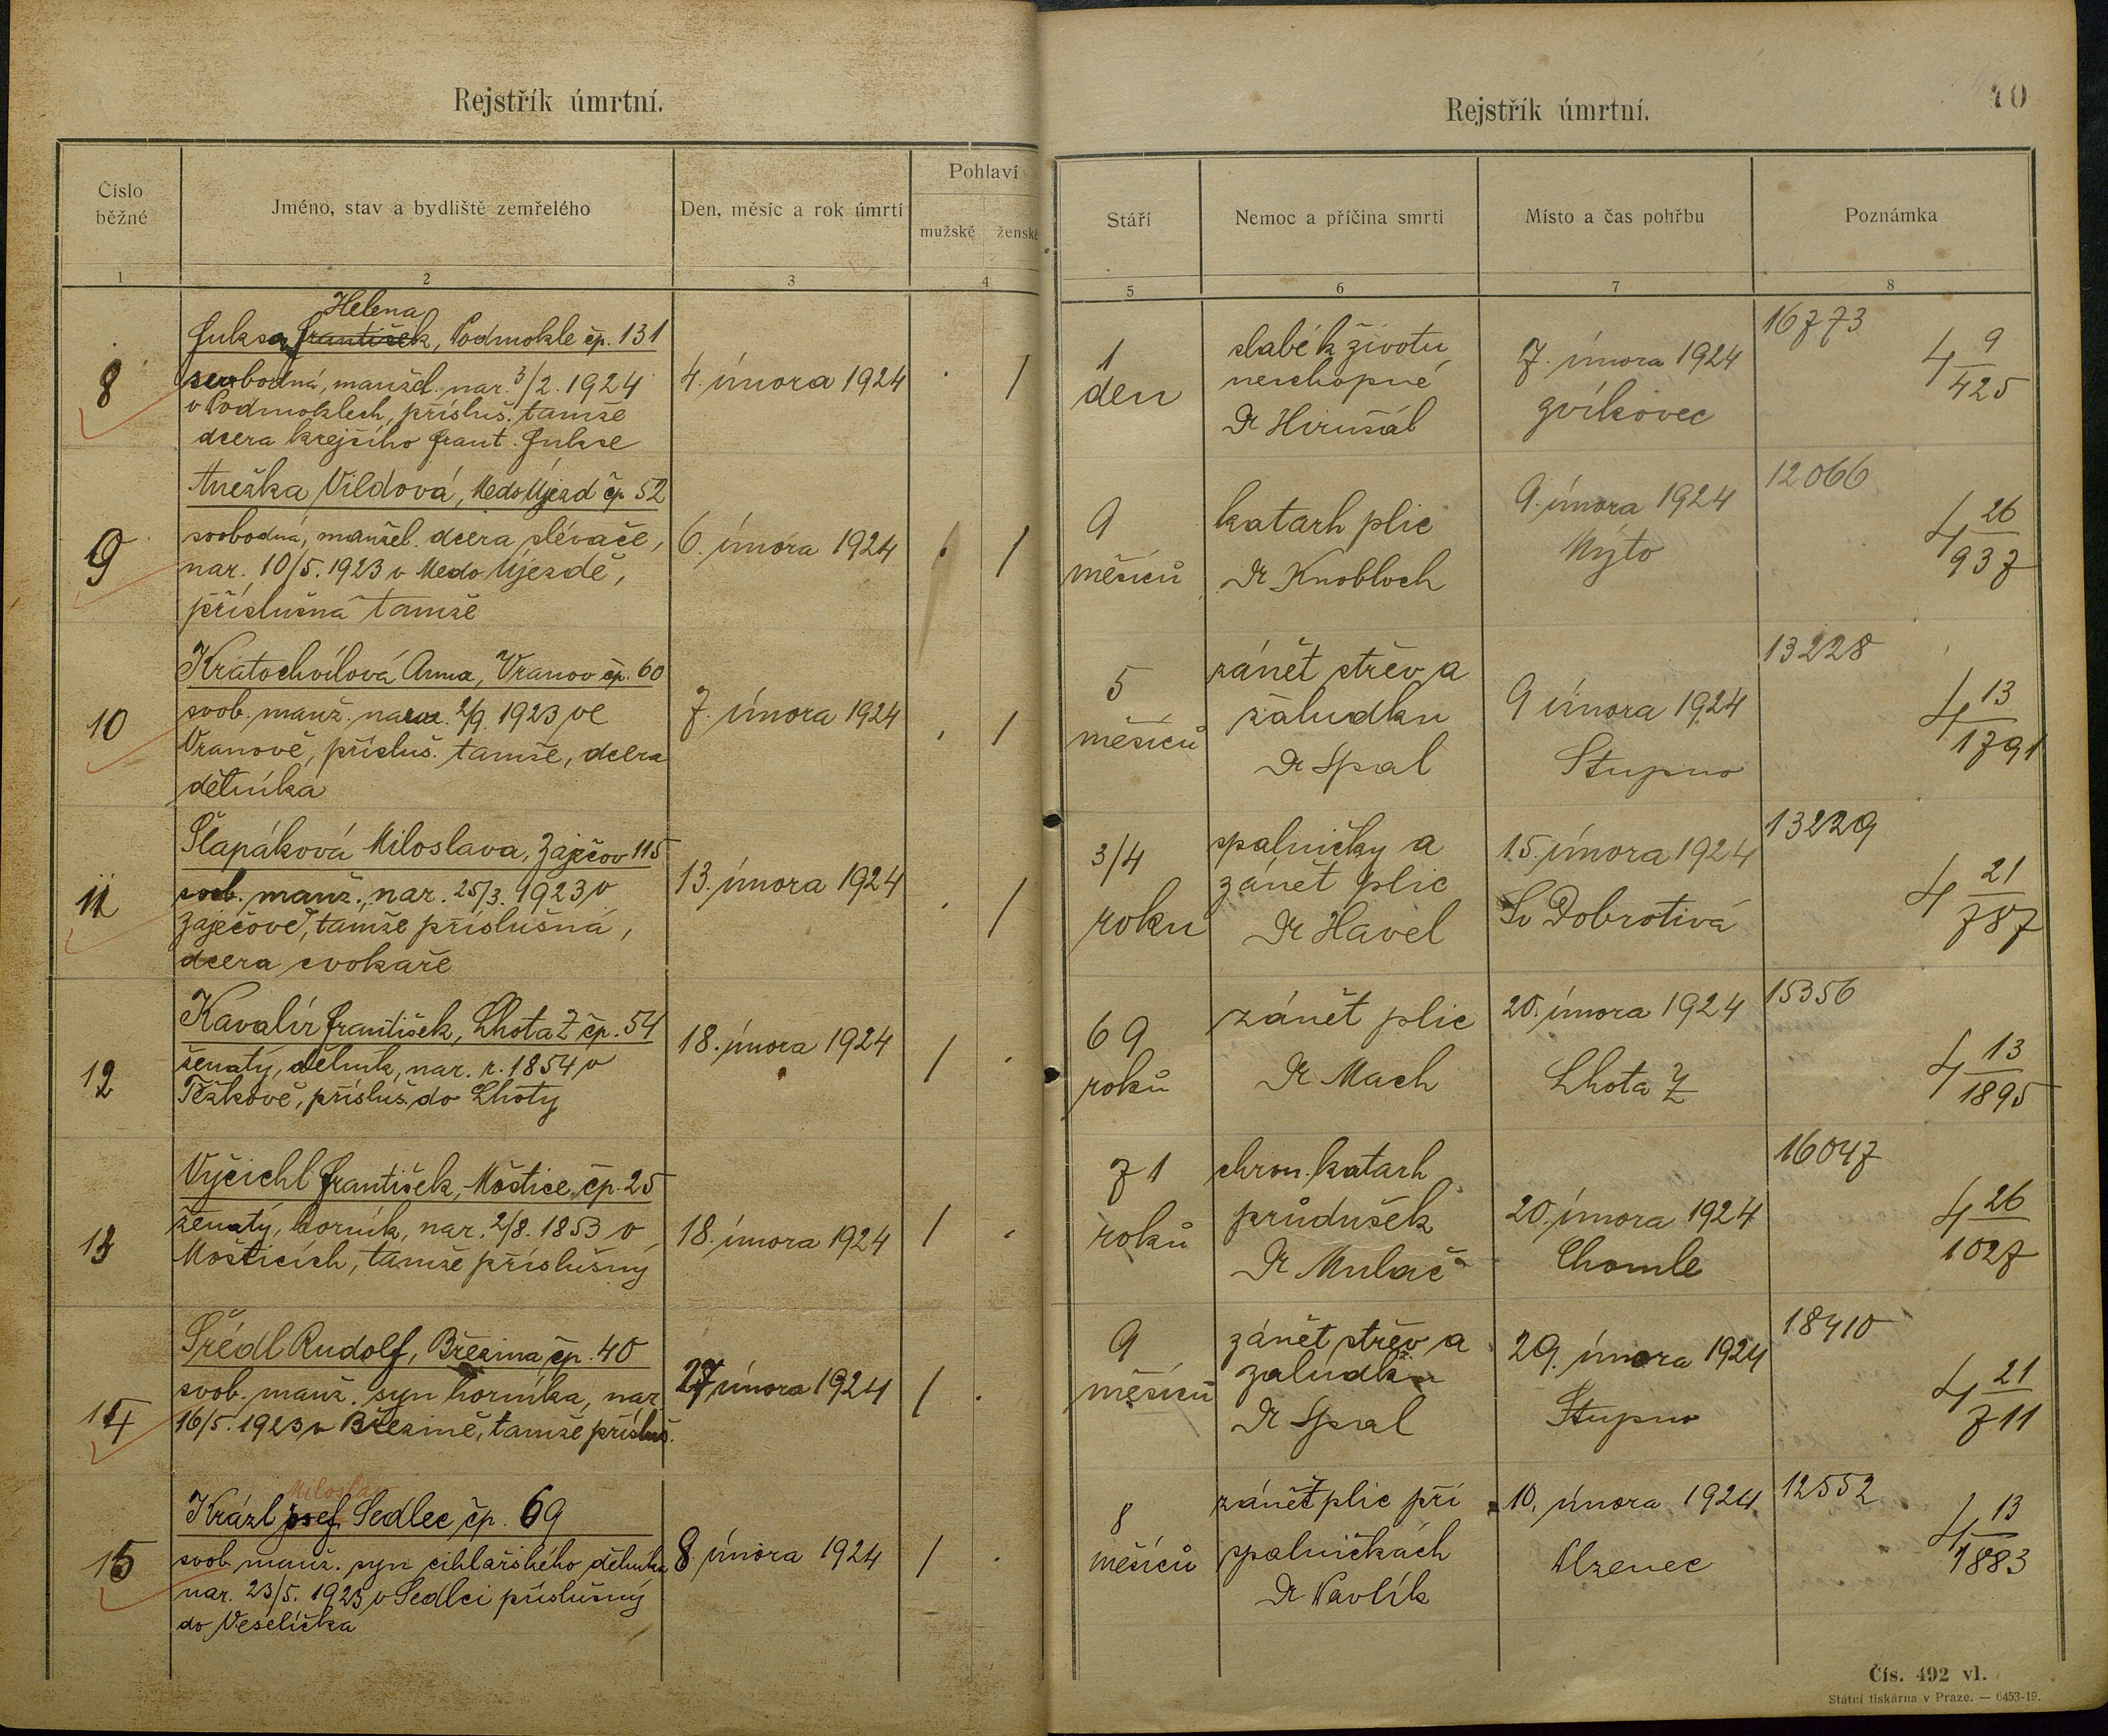 Rejstřík úmrtní.
Číslo běžné
Jméno, stav a bydliště zemřelého
Den, měsíc a rok úmrtí
Pohlaví
mužské
ženské
1
2
3
4
Helena
Fuksa František, Podmokle čp. 131
8
svobodná, manžel. nar. 3/2. 1924
v Podmoklech, přísluš. tamže
dcera krejčího Frant. Fukse
4. února 1924
Anežka Vildová, Medo Újezd čp. 52
9
svobodná, manžel. dcera slévače,
nar. 10/5. 1923 v Medo Újezdě,
příslušná tamže
6. února 1924
Kratochvílová Anna, Vranov čp. 60
10
svob. manž. naroz. 2/9. 1923 ve
Vranově, přísluš. tamže, dcera
dělníka
7. února 1924
Šlapáková Miloslava, Zaječov 115
11
svob. manž., nar. 25/3. 1923 v
Zaječově, tamže příslušná,
dcera cvokaře
13. února 1924
Kavalír František, Lhota Z čp. 54
12
ženatý, dělník, nar. r. 1854 v
Těškově, přísluš. do Lhoty
18. února 1924
Vyčichl František, Moštice čp. 25
13
ženatý, horník, nar. 2/8. 1853 v
Mošticích, tamže příslušný
18. února 1924
Šrédl Rudolf, Březina čp. 40
14
svob. manž. syn horníka, nar.
16/5. 1923 v Březině, tamže přísluš.
27 února 1924
Miloslav
Král Josef, Sedlec čp. 69
15
svob. manž. syn cihlářského dělníka
nar. 23/5. 1923 v Sedlci příslušný
do Veselíčka
8. února 1924
Rejstřík úmrtní.
10
Stáří
Nemoc a příčina smrti
Místo a čas pohřbu
Poznámka
5
6
7
8
1
den
slabé k životu
neschopné
Dr Hirušál
7. února 1924
Zvíkovec
16773
4 9/425
9
měsíců
katarh plic
Dr Knobloch
9. února 1924
Mýto
12066
4 26/937
5
měsíců
zánět střev a
žaludku
Dr Spal
9 února 1924
Stupno
13228
4 13/1791
3/4
roku
spalničky a
zánět plic
Dr Havel
15. února 1924
Sv Dobrotivá
13229
4 21/787
69
roků
zánět plic
Dr Mach
20. února 1924
Lhota Z
15356
4 13/1895
71
roků
chron. katarh
průdušek
Dr Mulač
20. února 1924
Chomle
16047
4 26/1027
9
měsíců
zánět střev a
žalúdku
Dr Spal
29. února 1924
Stupno
18410
4 21/711
8
měsíců
zánět plic při
spalničkách
Dr Pavlík
10. února 1924
12552
4 13/1883
Čís. 492 vl.
Státní tiskárna v Praze. — 6453-19.